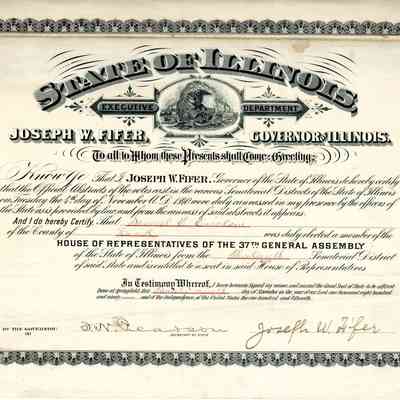 STATE OF ILLINOIS.
EXECUTIVE DEPARTMENT
JOSEPH W. FIFER, GOVERNOR OF ILLINOIS.
To all to Whom these Presents shall Come: Greeting:
Know ye That I JOSEPH W. FIFER, Governor of the State of Illinois do hereby certify
that the Official Abstracts of the votes cast in the various Senatorial Districts of the State of Illinois
on Tuesday the 4th day of November A.D. 1890 were duly canvassed in my presence by the officers of
the State as is provided by law and from the canvass of said abstracts it appears.
And I do hereby Certify That
of the County of was duly elected a member of the
HOUSE OF REPRESENTATIVES OF THE 37TH GENERAL ASSEMBLY
of the State of Illinois from the Senatorial District
of said State and is entitled to a seat in said House of Representatives.
In Testimony Whereof, I have hereunto signed my name and caused the Great Seal of State to be affixed
Done at Springfield this day of in the year of our Lord one thousand eight hundred
and ninety and of the Independence of the United States the one hundred and fifteenth.
BY THE GOVERNOR:
I. N. Pearson
SECRETARY OF STATE
Joseph W. Fifer